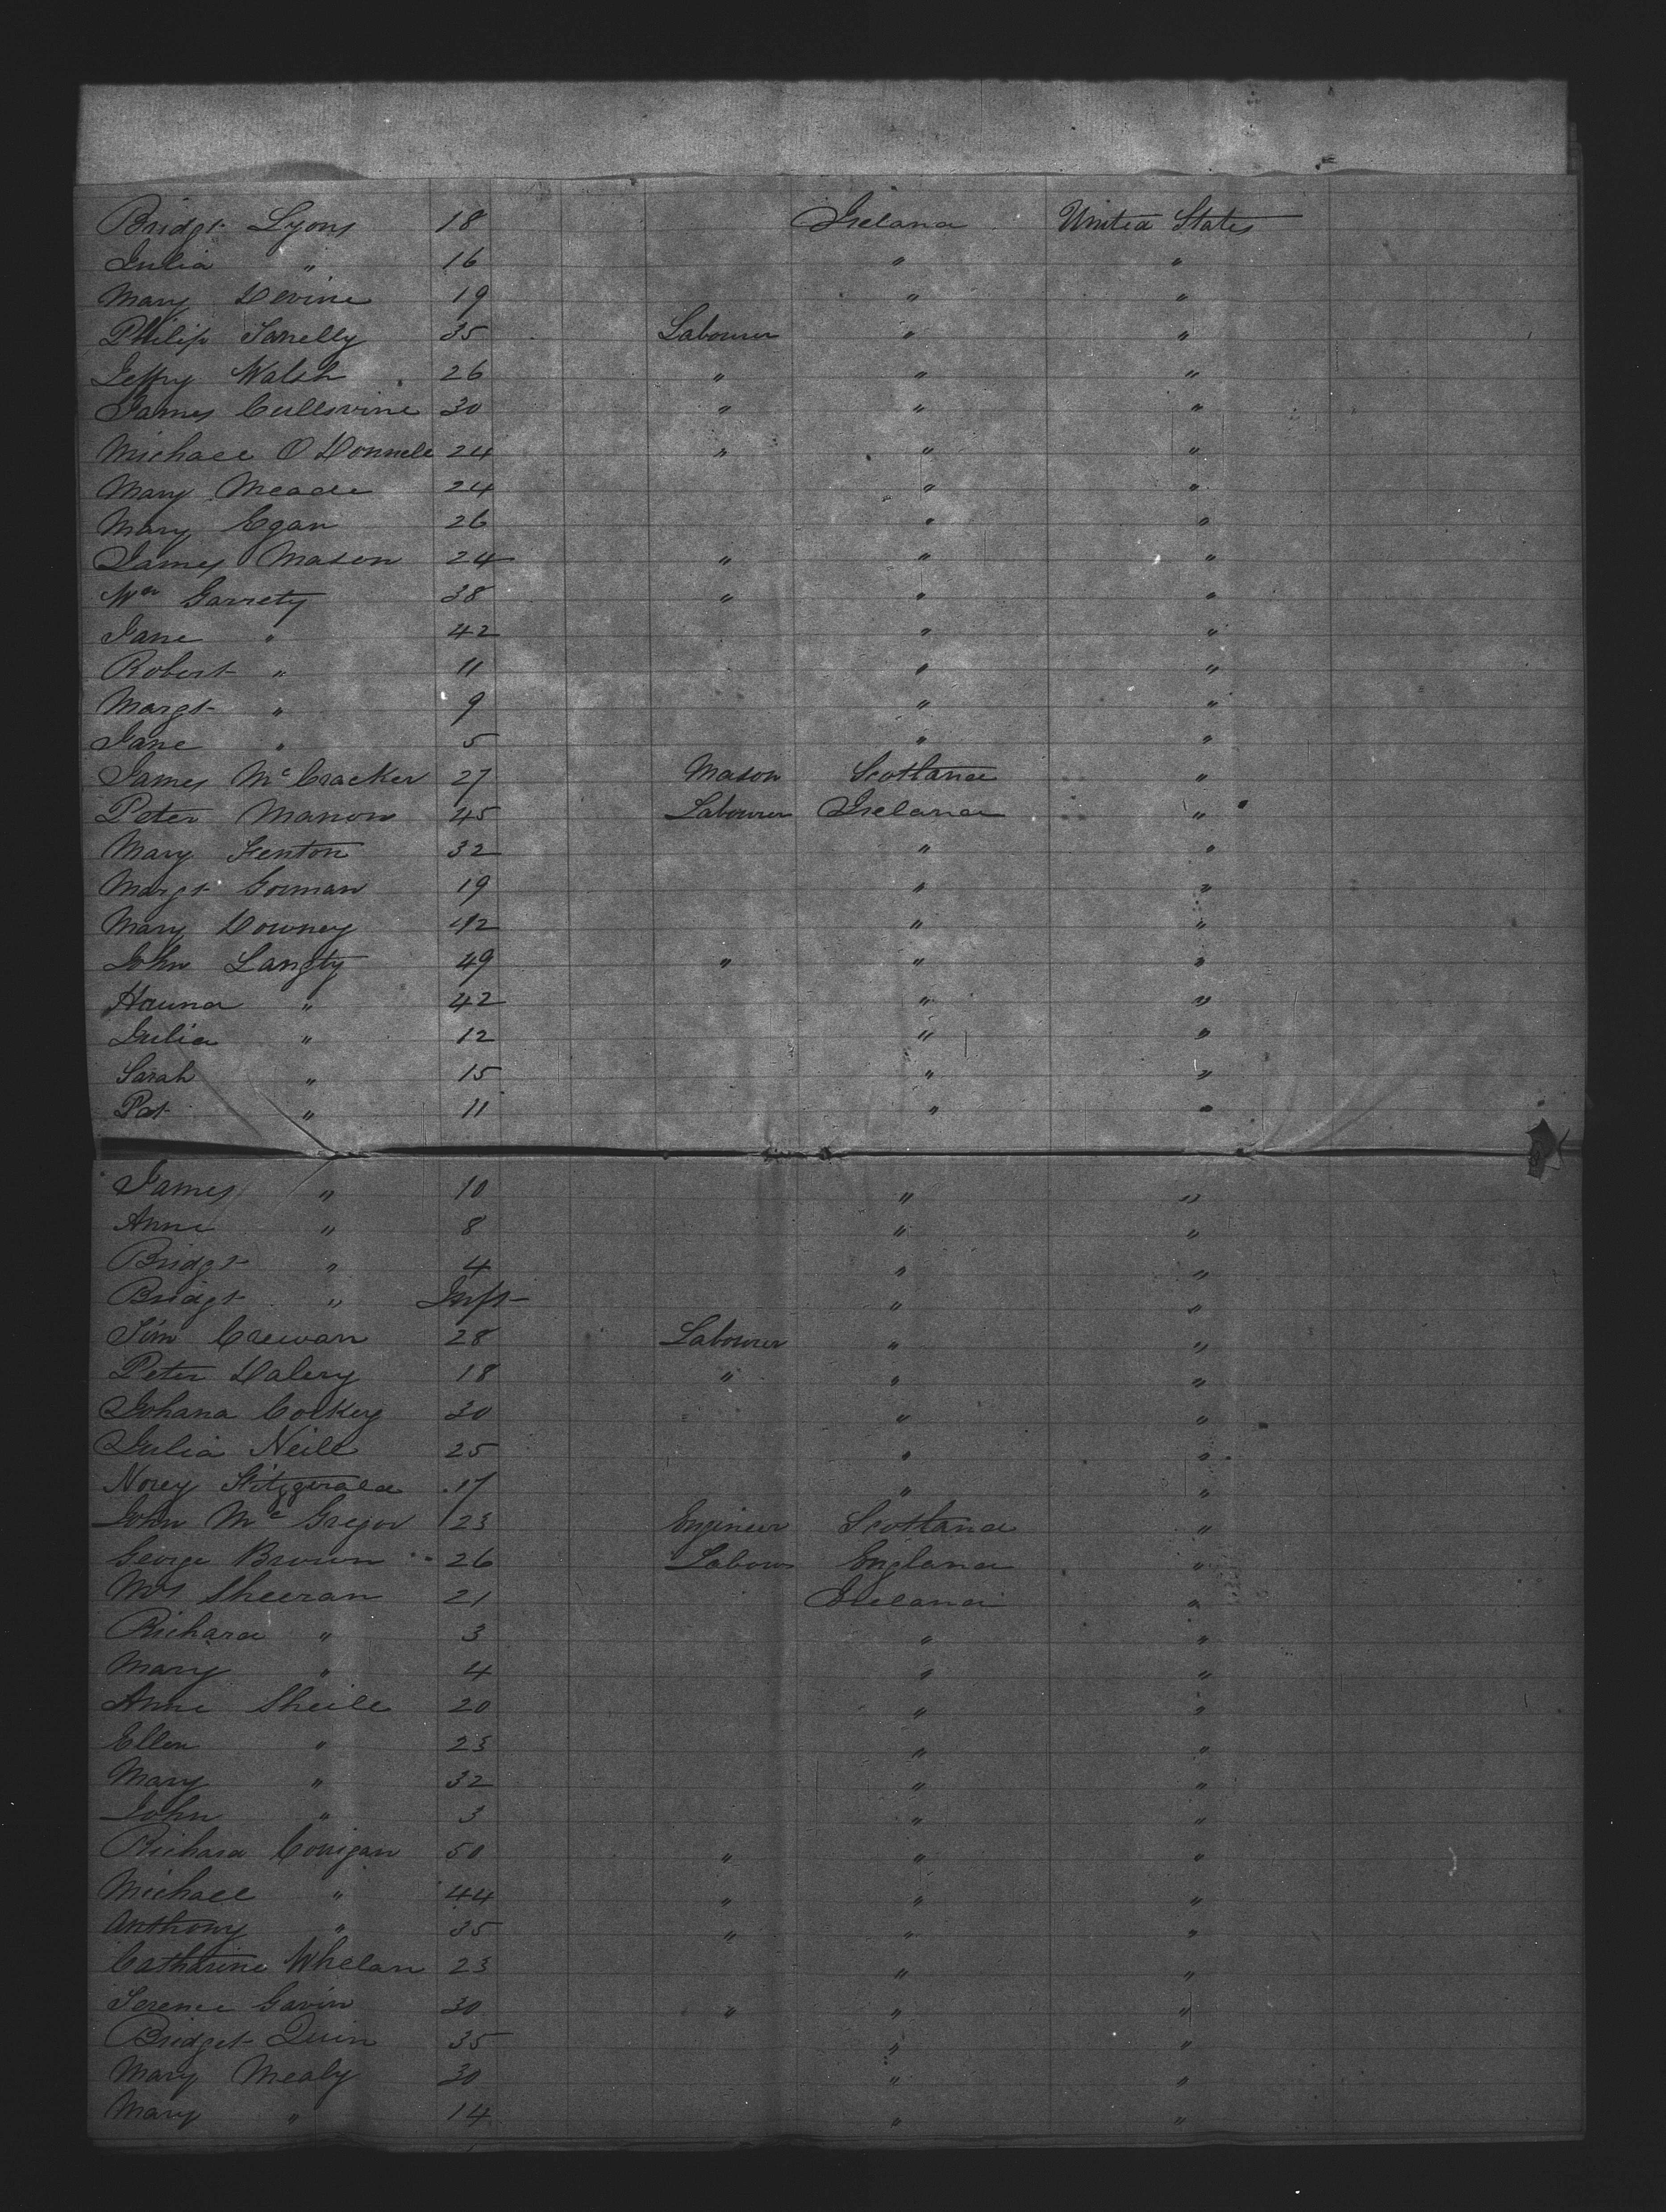 Bridgt Lyons 18 Ireland United States
Julia " 16 " "
Mary Devine 19 " "
Philip Farrelly 35 Labourer " "
Jeffry Walsh 26 " " "
James Cullevine 30 " " "
Michael O Donnell 24 " " "
Mary Meade 24 " "
Mary Egan 26 " "
James Mason 24 " " "
Wm Garrety 38 " " "
Jane " 42 " "
Robert " 11 " "
Margt " 9 " "
Jane " 5 " "
James McCracker 27 Mason Scotland "
Peter Manon 45 Labourer Ireland "
Mary Fenton 32 " "
Margt Gorman 19 " "
Mary Downey 42 " "
John Langty 49 " " "
Hanna " 42 " "
Julia " 12 " "
Sarah " 15 " "
Pat " 11 " "
James " 10 " "
Anne " 8 " "
Bridgt " 4 " "
Bridgt " Inft " "
Tim Crewan 28 Labourer " "
Peter Dalery 18 " " "
Johana Corkey 30 " "
Julia Neill 25 " "
Norey Fitzgerald 17 " "
John Mc Gregor 23 Engineer Scotland "
George Brown 26 Labour England "
Mrs Sheeran 21 Ireland "
Richard " 3 " "
Mary " 4 " "
Anne Sheile 20 " "
Ellen " 23 " "
Mary " 32 " "
John " 3 " "
Richard Corrigan 50 " " "
Michael " 44 " " "
Anthony " 35 " " "
Catharine Whelan 23 " "
Terence Gavin 30 " " "
Bridget Quin 35 " "
Mary Mealy 30 " "
Mary " 14 " "